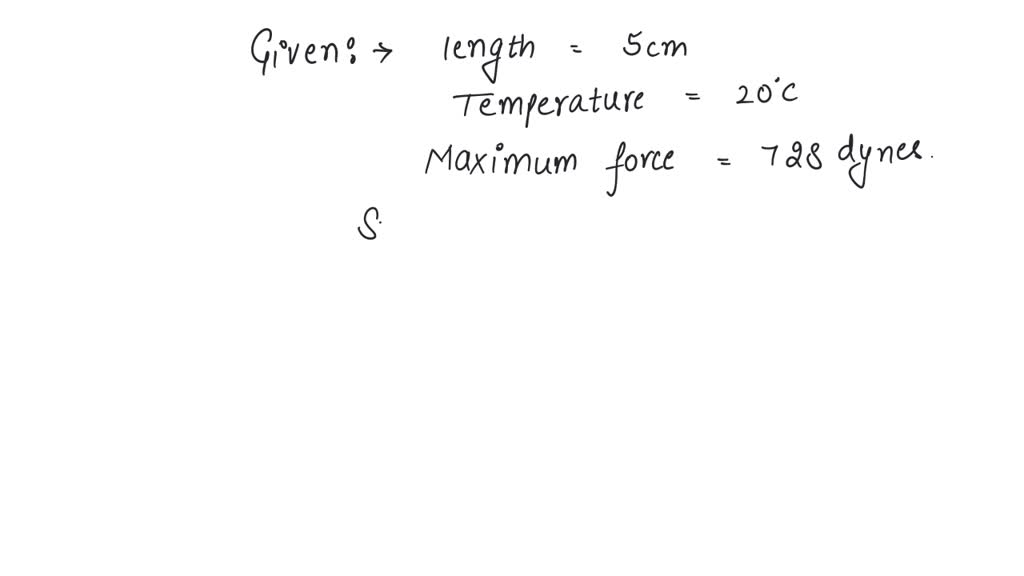 Given:→ length = 5cm
Temperature = 20°C
Maximum force = 728 dynes.
S